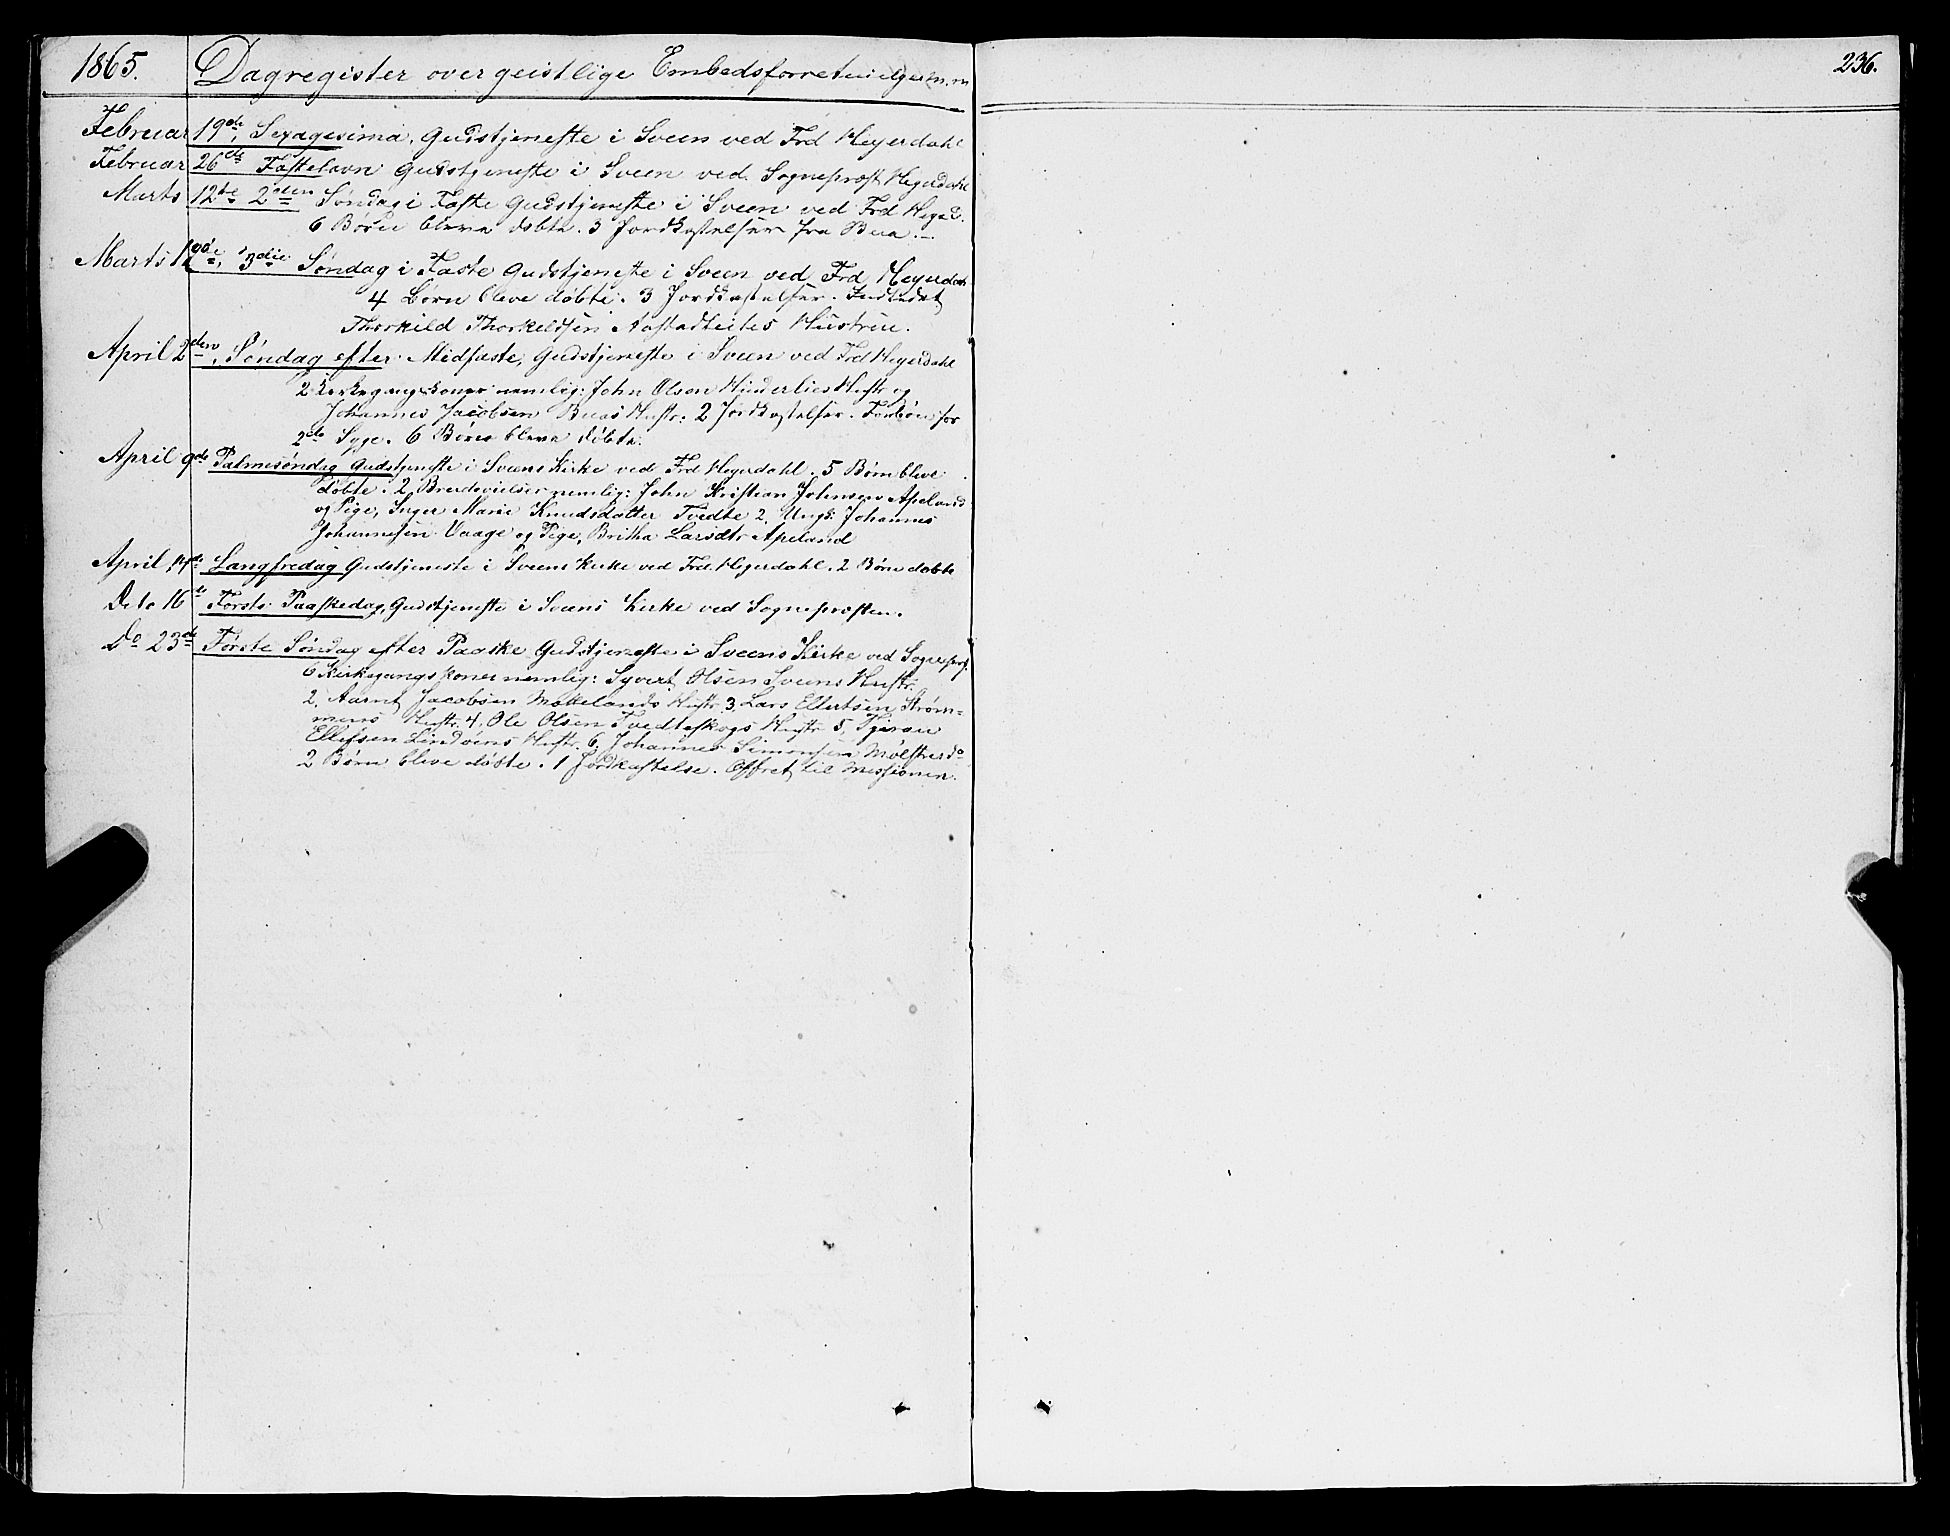 1865. Dagregister over geistlige Embedsforretningers m.m
236.
Februar 19de Sexagesima, Gudstjeneste i Sveen ved Frd Heyerdahl
Februar 26de Fastelavn Gudstjeneste i Sveen ved Sogneprest Heyerdahl
Marts 12te 2den Søndag i Faste Gudstjeneste i Sveen ved Frd Heyed.
6 Børn bleve døbte. 3 Jordkastelser fra Bua.
Marts 3die Søndag i Faste Gudstjeneste i Sveen ved Frd Heyerdahl
4 Børn bleve døbte. 3 Jordkastelser. Indledet
Thorkild Thorkeldsen Hustrue.
April 2den, Søndag efter Midfaste, Gudstjeneste i Sveen ved Frd Heyerdahl
2 Kirkegangskoner nemlig: John Olsen Hinderlies Hustr og
Johannes Jacobsen Buas Hustr: 2 Jordkastelser. Forbøn for
2de Syge. 6 Børn bleve døbte.
April 9de Palmesøndag Gudstjeneste i Sveens Kirke ved Frd Heyerdahl. 5 Børn bleve
døbte. 2 Brudevielser nemlig: John Kristian Johnsen Apeland
og Pige, Inger Marie Knudsdatter Tvedte 2, Ungk: Johannes
Johannesen Vaage og Pige, Britha Larsdtr Apeland
April 14de Langfredag Gudstjeneste i Sveens Kirke ved Frd. Heyerdahl. 2 Børn døbte
Dito 16de Første Paaskedag, Gudstjeneste i Sveens Kirke ved Sognepresten.
Do 23de Første Søndag efter Paaske Gudstjeneste i Sveens Kirke ved Sognepr.
6 Kirkegangskoner nemlig: Syvert Olsen Sveens Hustr.
2, Aamt Jacobsen Møllelands Hustr 3, Lars Ellertsen Strøm=
mens Hustr. 4, Ole Olsen Tvedteskogs Hustr 5,
Ellefsen Lindøens Hustr. 6, Johannes Simonsen Mølstres do
2 Børn bleve døbte. 1 Jordkastelse. Offret til Missionen.